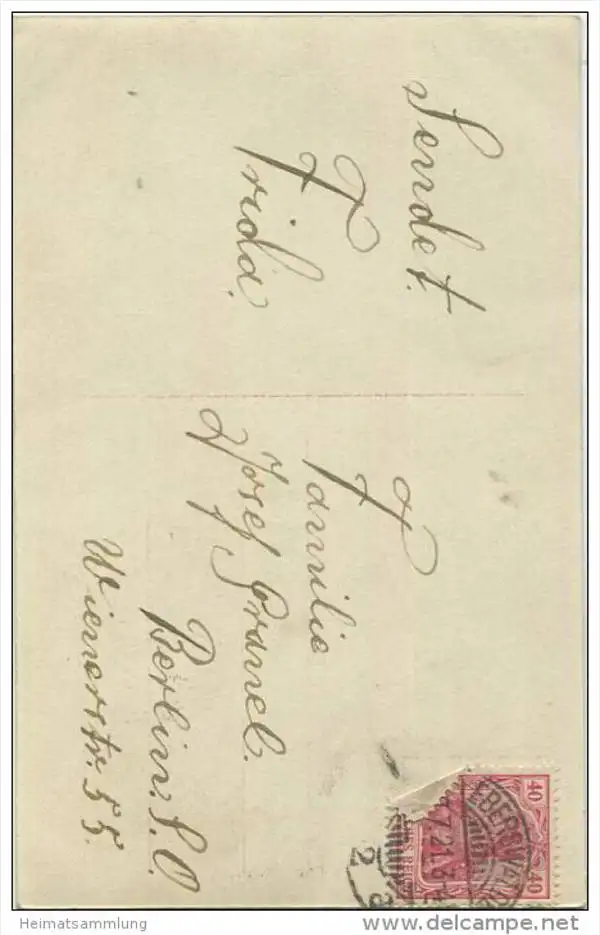 Sendet.
Frida.
Familie
Josef Gramel.
Berlin. S.O.
Wienerstr. 55.
40 40
EBERSWALDE
7.21.
Heimatsammlung
www.delcampe.net